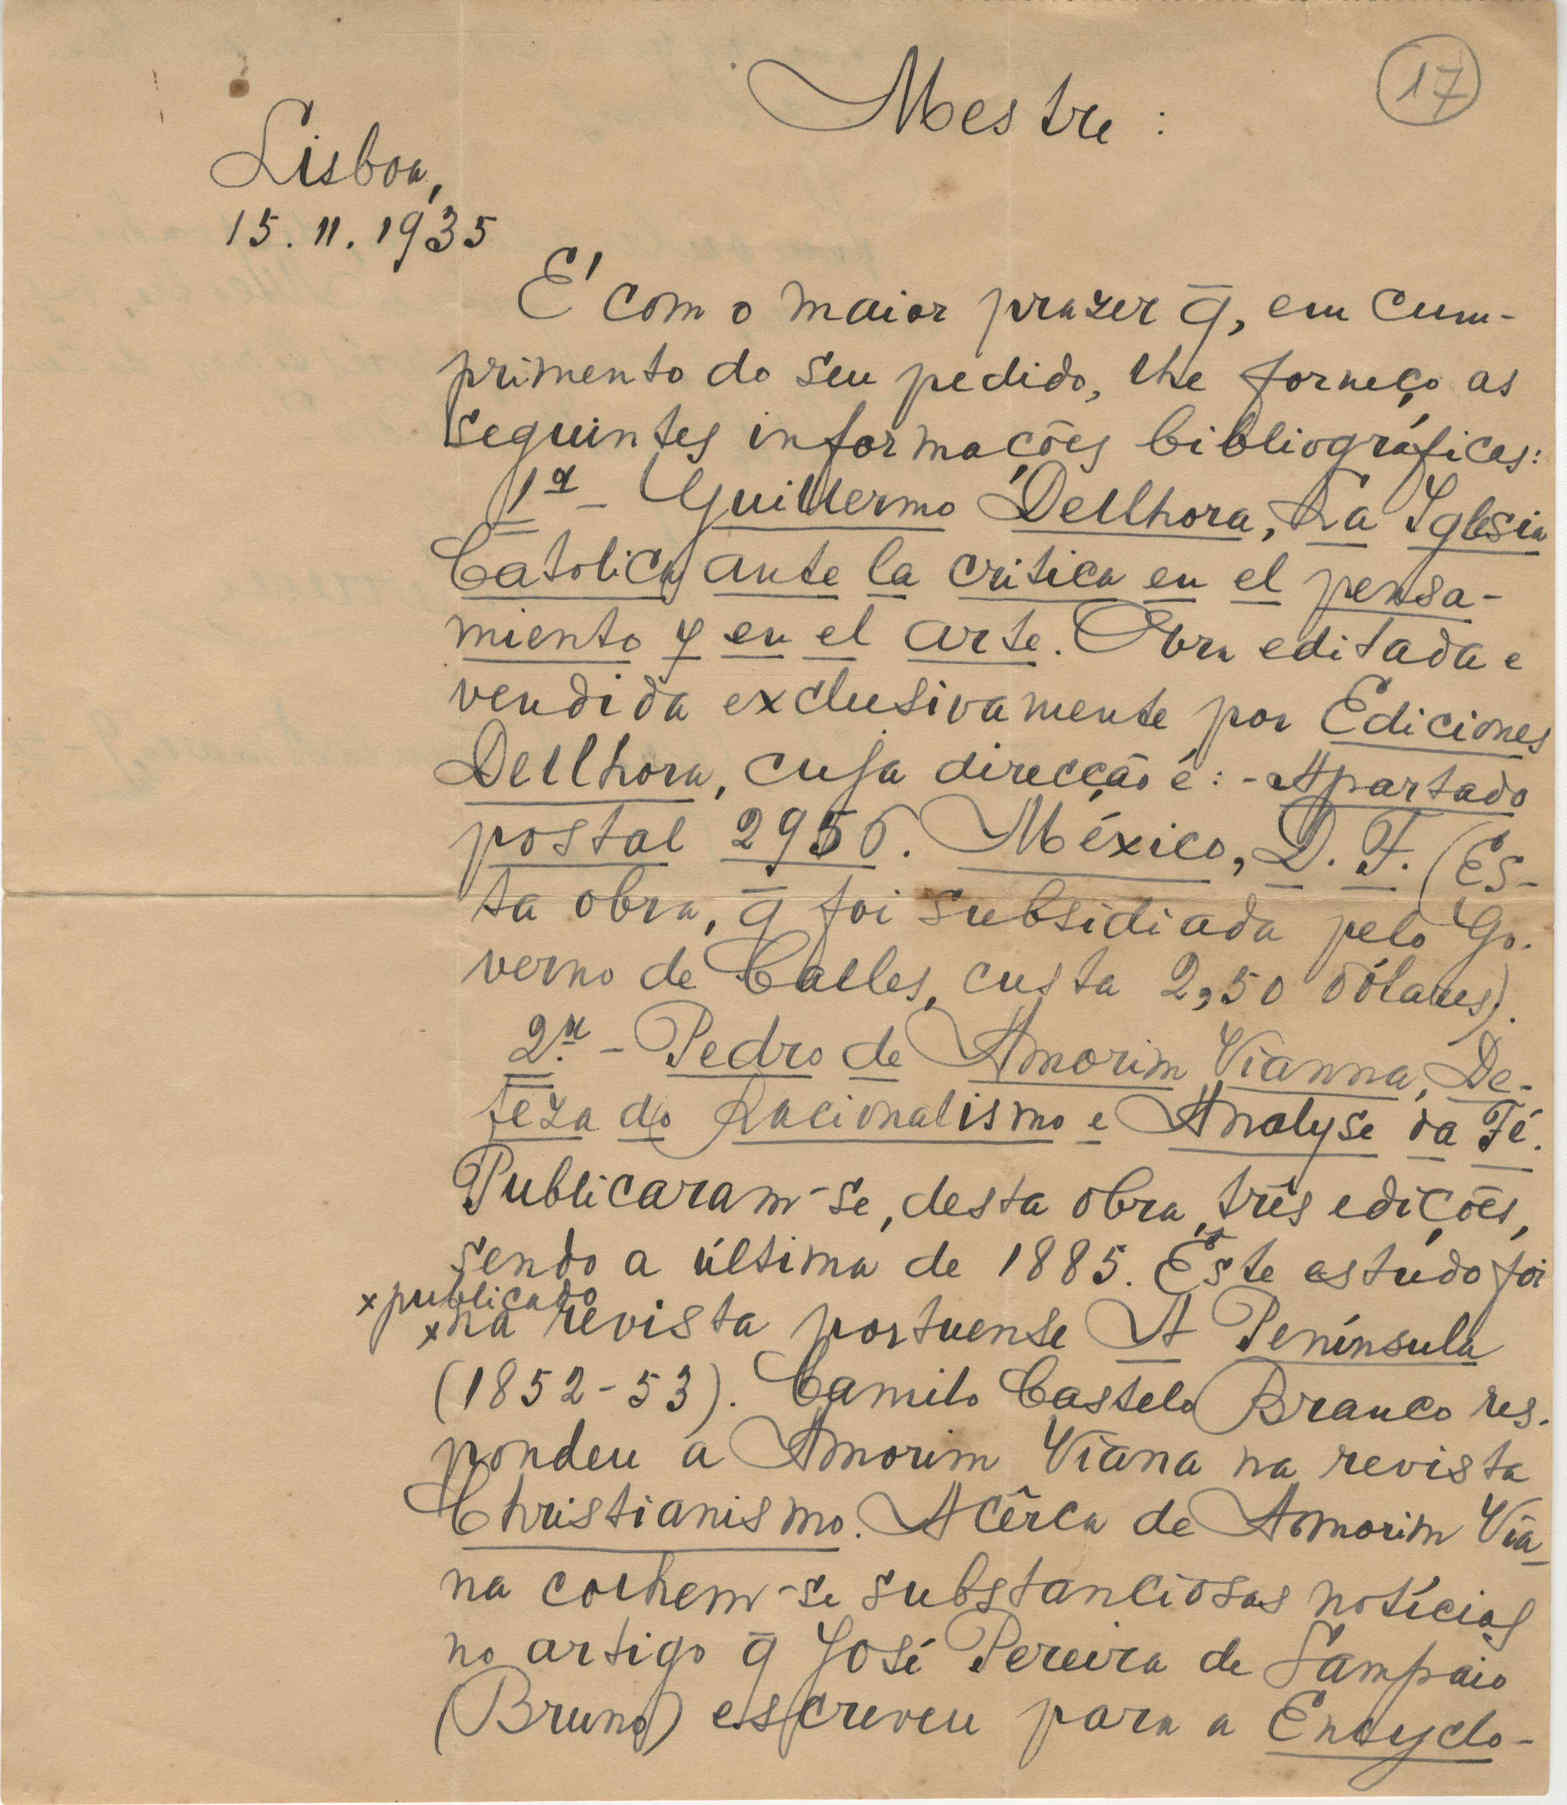 17
Mestre :
Lisboa,
15. 11. 1935
É com o maior prazer q̄, em cum-
primento do seu pedido, lhe forneço as
seguintes informações bibliográficas:
1ª - Guillermo Dellhora, La Iglesia
Catolica ante la critica en el pensa-
miento y en el arte. Obra editada e
vendida exclusivamente por Ediciones
Dellhora, cuja direcção é: - Apartado
postal 2956. México, D. F. (Es-
ta obra, q̄ foi subsidiada pelo Go-
verno de Calles, custa 2,50 dólares).
2.ª - Pedro de Amorim Vianna, De-
feza do Racionalismo e Analyse da Fé.
Publicaram-se, desta obra, três edições,
sendo a última de 1885. Êste estudo foi
x publicado
x na revista portuense A Península
(1852-53). Camilo Castelo Branco res-
pondeu a Amorim Viana na revista
Christianismo. Acêrca de Amorim Via-
na colhem-se substanciosas notícias
no artigo q̄ José Pereira de Sampaio
(Bruno) escreveu para a Encyclo-